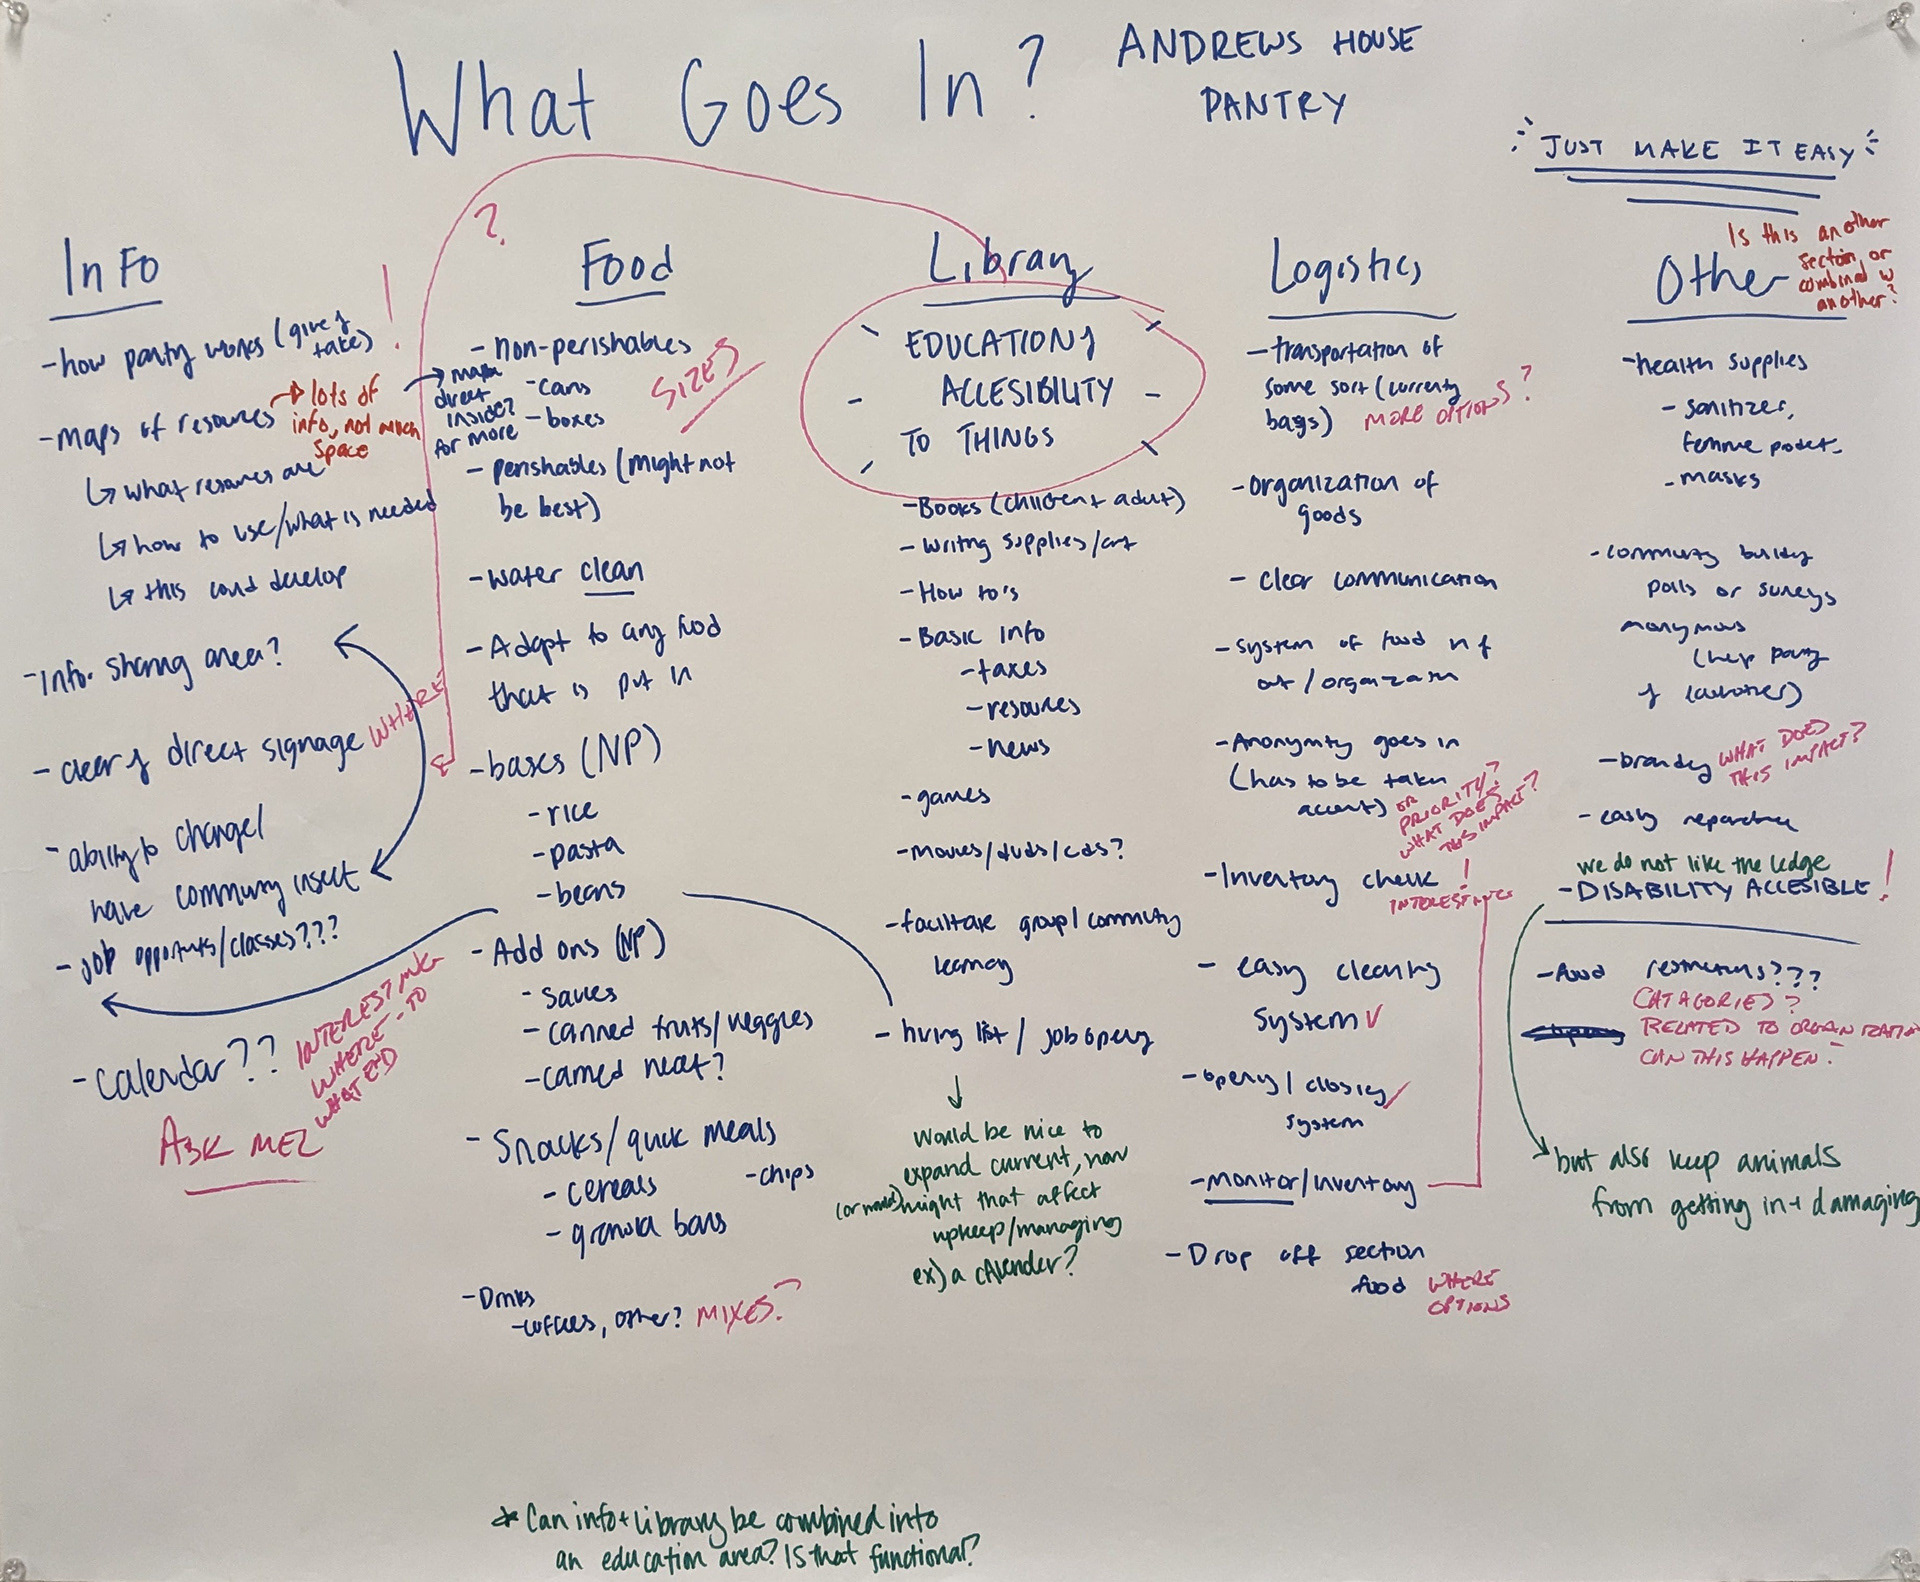 What Goes In?
ANDREWS HOUSE
PANTRY
JUST MAKE IT EASY
Info
!
-how panty works (give &
take)
-maps of resources
lots of
info, not much
space
↳ what resources are
↳ how to use/what is needed
↳ this could develop
-info. sharing area?
- clear & direct signage
WHERE
-ability to change/
have community insect
- job opportunts/classes???
-calendar??
INTEREST
WHERE - TO
WHAT END
ASK MEZ
?
Food
- non-perishables
-cans
- boxes
SIZES
maybe
direct
inside?
for more
- perishables (might not
be best)
-water clean
-Adapt to any food
that is put in
-bases (NP)
-rice
-pasta
-beans
- Add ons (NP)
- sauces
- canned fruits/veggies
-canned meat?
- Snacks/quick meals
- cereals
-chips
- granola bars
-Drinks
-coffees, other?
MIXES?
Library
EDUCATION &
ACCESIBILITY
TO THINGS
-Books (children + adult)
- writing supplies/art
- How to's
- Basic info
-taxes
-resources
-news
-games
-movies/dvds/cds?
-facilitate group/community
learning
- hiring list / job opening
would be nice to
expand current, how
(or would) might that affect
upkeep/managing
ex) a calender?
Logistics
-transportation of
some sort (currently
bags)
MORE OPTIONS?
-organization of
goods
- clear communication
-system of food in &
out / organization
-Anonymity goes in
(has to be taken
account)
OR
PRIORITY?
WHAT DOES
THIS IMPACT?
-Inventory check
!
INTERESTING
- easy cleaning
system ✓
-opening / closing ✓
system
-monitor/inventory
-Drop off section
food
WHERE
OPTIONS
Other
Is this another
section, or
combined w
another?
-health supplies
- sanitizer,
femme prodct.
- masks
-community building
polls or surveys
anonymous
(help panty
& customer)
-branding
WHAT DOES
THIS IMPACT?
- easily reparable
we do not like the ledge
-DISABILITY ACCESIBLE
!
-food restrictions???
CATAGORIES?
RELATED TO ORGANIZATION
CAN THIS HAPPEN?
but also keep animals
from getting in + damaging
* Can info + Library be combined into
an education area? Is that functional?